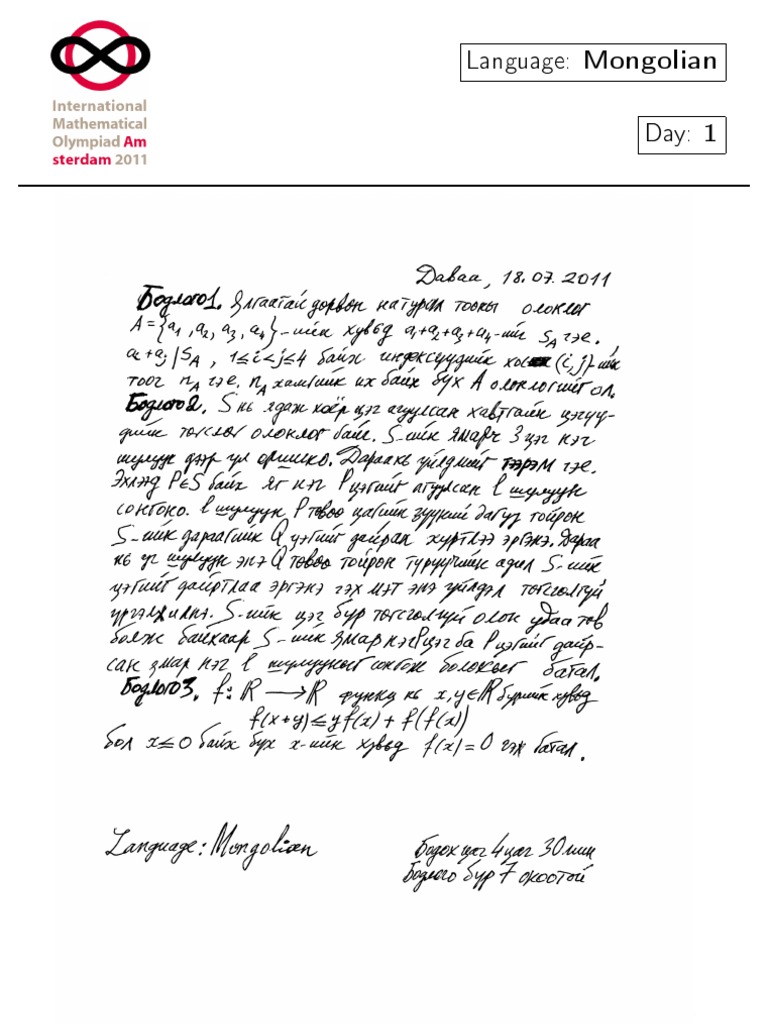 International
Mathematical
Olympiad Am
sterdam 2011
Language: Mongolian
Day: 1
Даваа, 18.07.2011
Бодлого1. Ялгаатай дөрвөн натурал тооны олонлог
A={a₁, a₂, a₃, a₄}-ийн хувьд a₁+a₂+a₃+a₄-ийг S_A гэе.
aᵢ+aⱼ|S_A, 1≤i<j≤4 байх индексүүдийн хос (i,j)-ийн
тоог n_A гэе. n_A хамгийн их байх бүх A олонлогийг ол.
Бодлого2. S нь ядаж хоёр цэг агуулсан хавтгайн цэгүү-
дийн төгсгөлөг олонлог байг. S-ийн ямарч 3 цэг нэг
шулуун дээр үл оршино. Дараахь үйлдлийг тээрэм гэе.
Эхлээд P∈S байх яг нэг P цэгийг агуулсан l шулуун
сонгоно. l шулуун P төвөө цагийн зүүний дагуу тойрон
S-ийн дараагийн Q цэгийг дайран хүртлээ эргэнэ. Дараа
нь уг шулуун энэ Q төвөө тойрон түрүүчийн адил S-ийн
цэгийг дайртлаа эргэнэ гэх мэт энэ үйлдэл төгсгөлгүй
үргэлжилнэ. S-ийн цэг бүр төгсгөлгүй олон удаа төв
болж байхаар S-ийн ямар нэг P цэг ба P цэгийг дайр-
сан ямар нэг l шулууныг сонгож болохыг батал.
Бодлого3. f: ℝ ⟶ ℝ функц нь x,y∈ℝ бүрийн хувьд
f(x+y)≤yf(x)+f(f(x))
бол x≤0 байх бүх x-ийн хувьд f(x)=0 гэж батал.
Language: Mongolian
Бодох цаг 4 цаг 30 мин
Бодлого бүр 7 оноотой